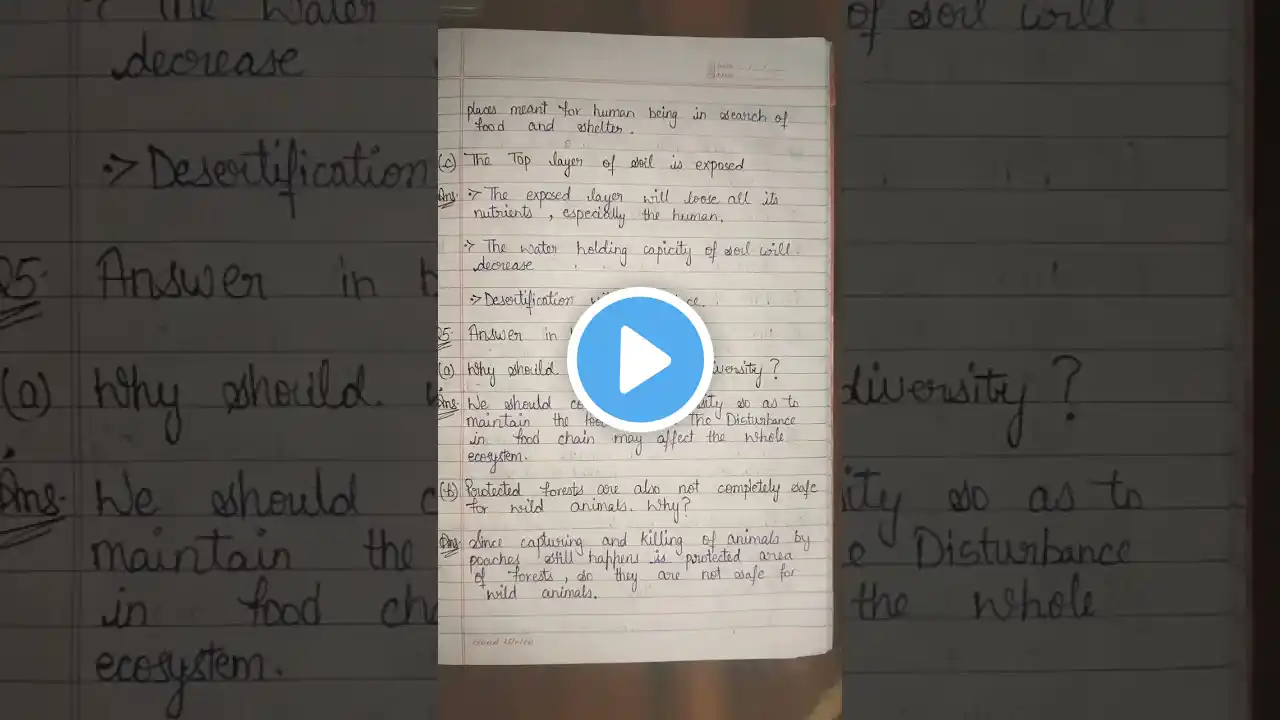 places meant for human being in search of
food and shelter.
(c) The Top layer of soil is exposed
Ans. :> The exposed layer will loose all its
nutrients, especially the human.
:> The water holding capicity of soil will
decrease
:> Desertification
Q5. Answer in
(a) Why should diversity?
Ans. We should so as to
maintain the The Disturbance
in food chain may affect the whole
ecosystem.
(b) Protected forests are also not completely safe
for wild animals. Why?
Ans Since capturing and killing of animals by
poaches still happens is protected area
of forests, so they are not safe for
wild animals.